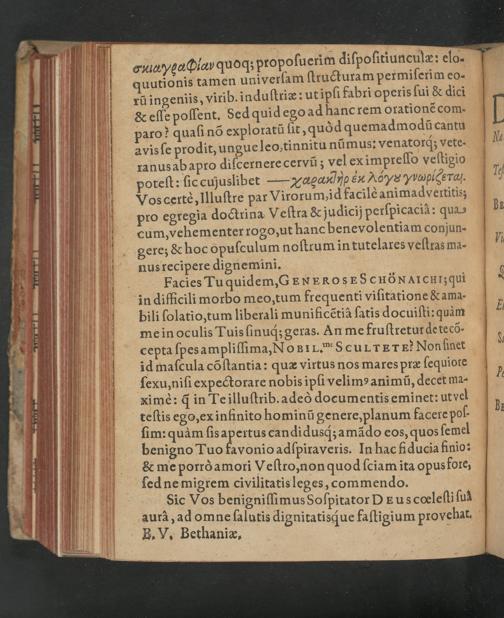 σκιαγραφίαν quoq; proposuerim dispositiunculæ: elo-
quutionis tamen universam structuram permiserim eo-
rũ ingeniis, virib. industriæ: ut ipsi fabri operis sui & dici
& esse possent. Sed quid ego ad hanc rem orationẽ com-
paro? quasi nõ exploratũ sit, quòd quemadmodũ cantu
avis se prodit, ungue leo, tinnitu nũmus: venatorq́; vete-
ranus ab apro discernere cervũ; vel ex impresso vestigio
potest: sic cujuslibet — χαρακτὴρ ἐκ λόγου γνωρίζεται.
Vos certè, Illustre par Virorum, id facilè animadvertitis;
pro egregia doctrina Vestra & judicij perspicaciâ: qua-
cum, vehementer rogo, ut hanc benevolentiam conjun-
gere; & hoc opusculum nostrum in tutelares vestras ma-
nus recipere dignemini.
Facies Tu quidem, GENEROSE SCHÖNAICHI; qui
in difficili morbo meo, tum frequenti visitatione & ama-
bili solatio, tum liberali munificẽtiâ satis docuisti: quàm
me in oculis Tuis sinuq́; geras. An me frustretur de te cõ-
cepta spes amplissima, NOBIL.me SCULTETE? Non sinet
id mascula cõstantia: quæ virtus nos mares præ sequiore
sexu, nisi expectorare nobis ipsi velimꝰ animũ, decet ma-
ximè: q̃ in Te illustrib. adeò documentis eminet: ut vel
testis ego, ex infinito hominũ genere, planum facere pos-
sim: quàm sis apertus candidusq́; amãdo eos, quos semel
benigno Tuo favonio adspiraveris. In hac fiducia finio:
& me porrò amori Vestro, non quod sciam ita opus fore,
sed ne migrem civilitatis leges, commendo.
Sic Vos benignissimus Sospitator DEUS cœlesti suâ
aurâ, ad omne salutis dignitatisq́ue fastigium provehat.
B. V. Bethaniæ.